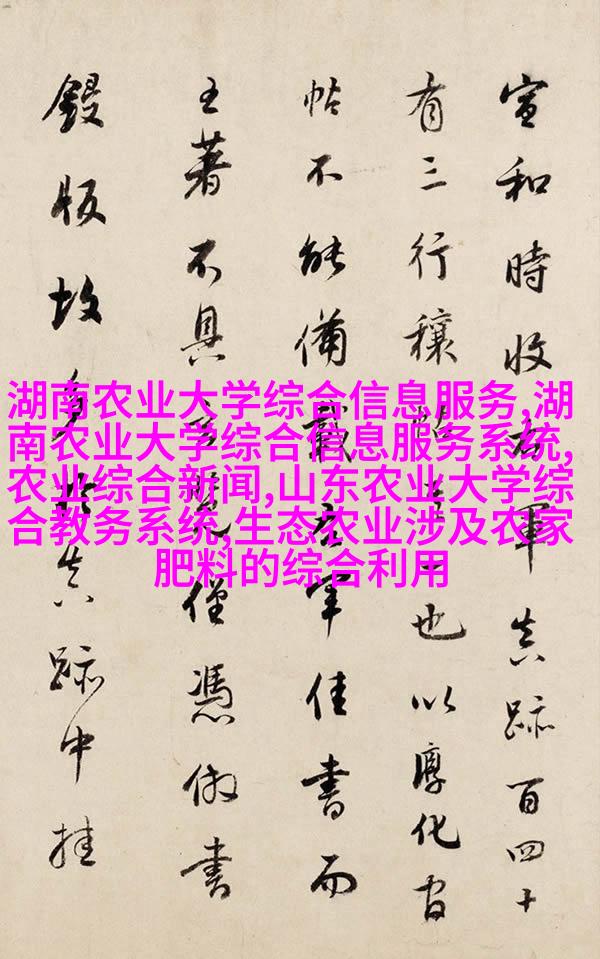 宣和時收右軍真跡百四十
有三行穰帖其一也以淳化官
帖不能備載右軍佳書而
王著不具玄覽僅憑倣書
鋟版故多於真跡中挂
湖南农业大学综合信息服务,湖
南农业大学综合信息服务系统,
农业综合新闻,山东农业大学综
合教务系统,生态农业涉及农家
肥料的综合利用